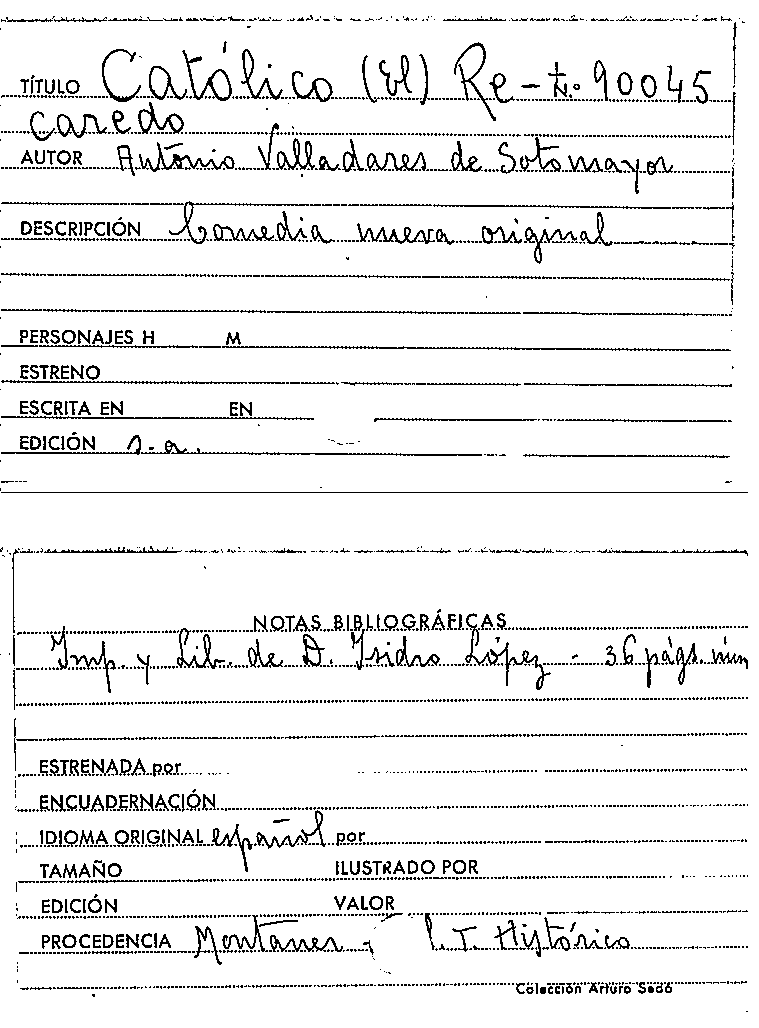 TÍTULO Católico (El) Re- N.º 90045
caredo
AUTOR Antonio Valladares de Sotomayor
DESCRIPCIÓN Comedia nueva original
PERSONAJES H M
ESTRENO
ESCRITA EN EN
EDICIÓN s.a.
NOTAS BIBLIOGRÁFICAS
Imp. y Lib. de D. Isidro López - 36 págs. núm
ESTRENADA por
ENCUADERNACIÓN
IDIOMA ORIGINAL español por
TAMAÑO ILUSTRADO POR
EDICIÓN VALOR
PROCEDENCIA Montaner - I. T. Histórico
Colección Arturo Sedó